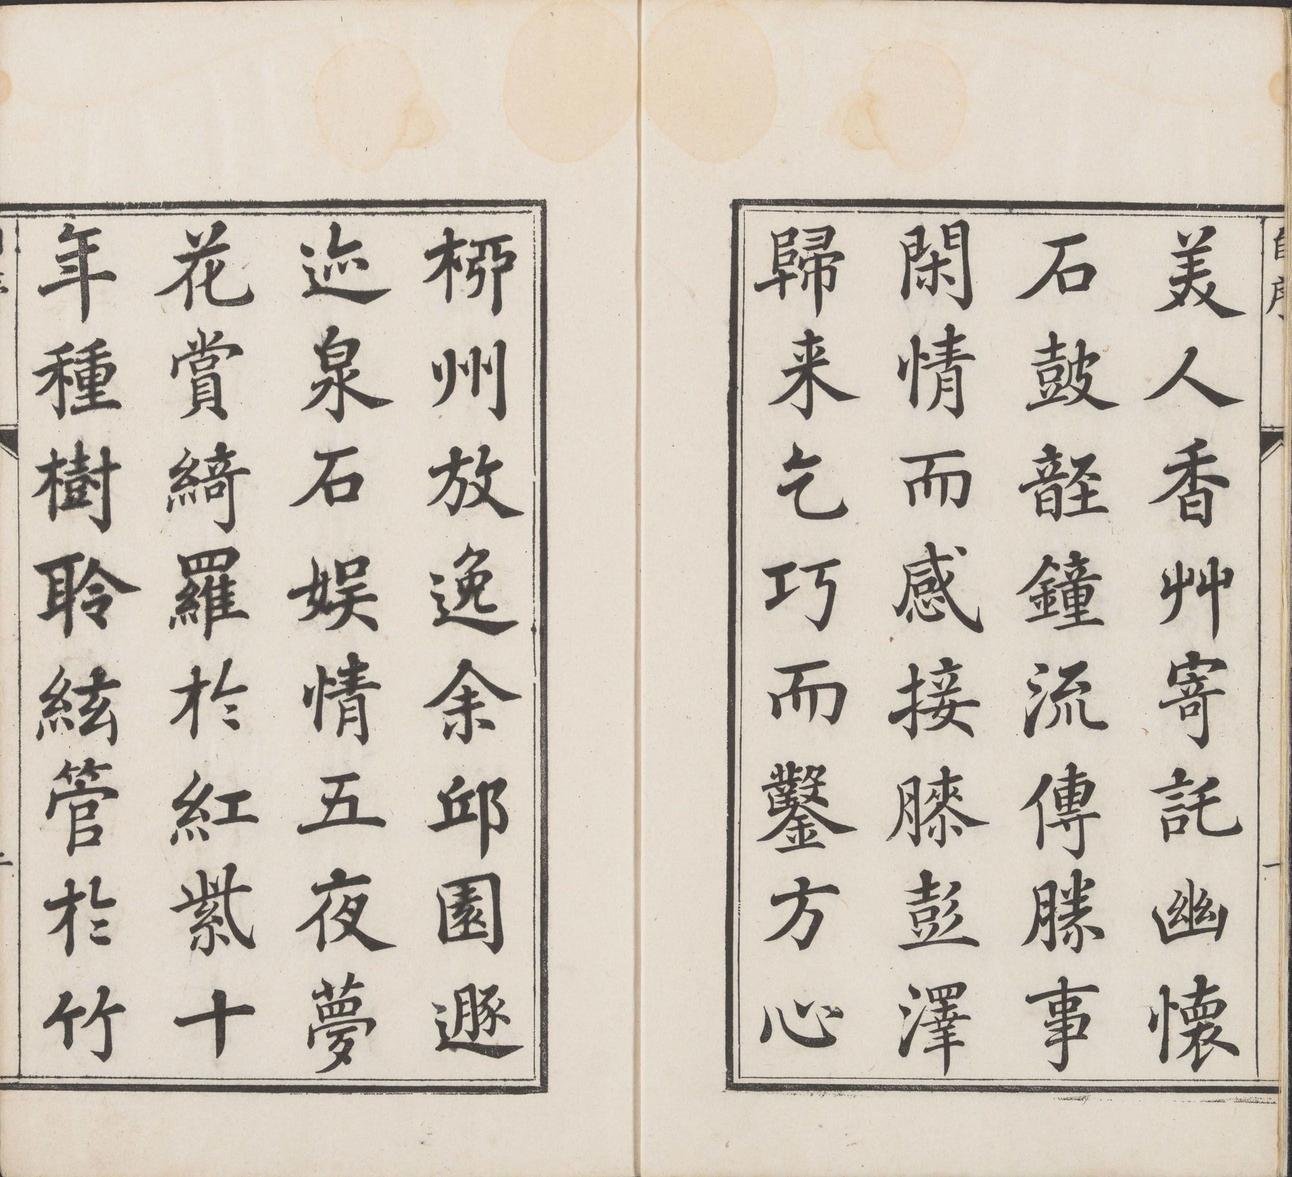 自序
一
美人香艸寄託幽懷
石鼓韾鐘流傳勝事
閑情而感接膝彭澤
歸来乞巧而鑿方心
柳州放逸余邱園遯
迹泉石娱情五夜夢
花賞綺羅於紅紫十
年種樹聆絃管於竹